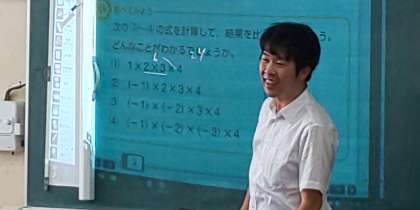 調べてみよう
次の①〜④の式を計算して、結果を比
どんなことがわかるでしょうか。
① 1×2×3×4
② (−1)×2×3×4
③ (−1)×(−2)×3×4
④ (−1)×(−2)×(−3)×4